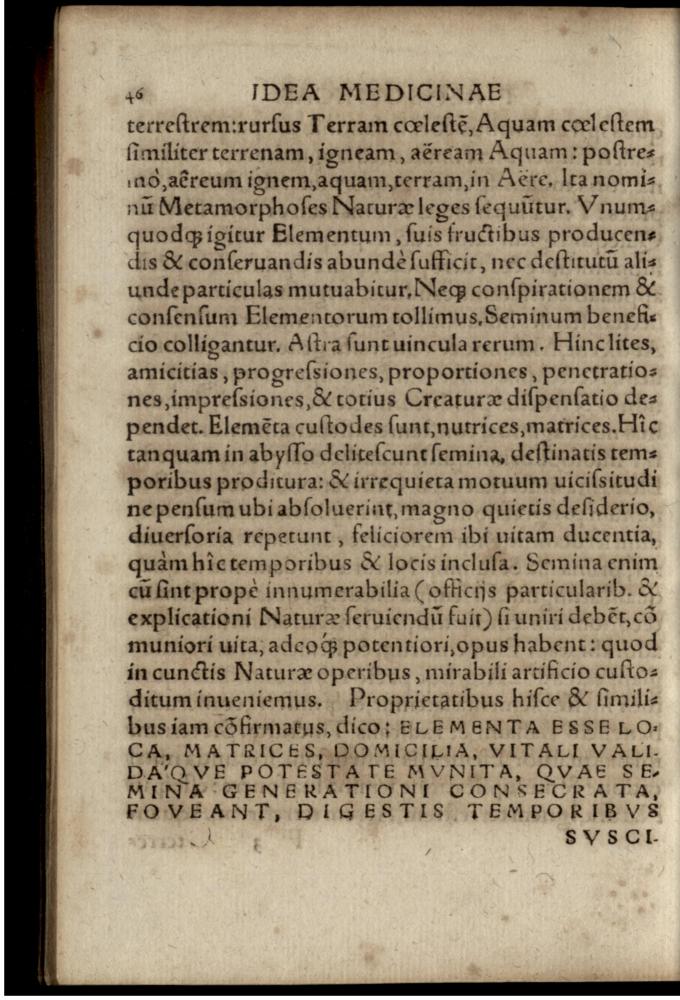 46 IDEA MEDICINAE
terreſtrem: rurſus Terram cœleſtē, Aquam cœleſtem
ſimiliter terrenam, igneam, aëream Aquam: poſtre⸗
mò, aëreum ignem, aquam, terram, in Aëre. Ita nomi⸗
nū Metamorphoſes Naturæ leges ſequūtur. Vnum⸗
quodꝙ igitur Elementum, ſuis fructibus producen⸗
dis & conſeruandis abundè ſufficit, nec deſtitutū ali⸗
unde particulas mutuabitur. Neꝙ conſpirationem &
conſenſum Elementorum tollimus. Seminum benefi⸗
cio colligantur. Aſtra ſunt uincula rerum. Hinc lites,
amicitias, progreſsiones, proportiones, penetratio⸗
nes, impreſsiones, & totius Creaturæ diſpenſatio de⸗
pendet. Elemēta cuſtodes ſunt, nutrices, matrices. Hîc
tanquam in abyſſo deliteſcunt ſemina, deſtinatis tem⸗
poribus proditura: & irrequieta motuum uiciſsitudi
ne penſum ubi abſoluerint, magno quietis deſiderio,
diuerſoria repetunt, feliciorem ibi uitam ducentia,
quàm hîc temporibus & locis incluſa. Semina enim
cū ſint propè innumerabilia (officijs particularib. &
explicationi Naturæ ſeruiendū fuit) ſi uniri debēt, cō
muniori uita, adeoꝙ́ potentiori, opus habent: quod
in cunctis Naturæ operibus, mirabili artificio cuſto⸗
ditum inueniemus. Proprietatibus hiſce & ſimili⸗
bus iam cōfirmatus, dico: ELEMENTA ESSE LO⸗
CA, MATRICES, DOMICILIA, VITALI VALI-
DA'QVE POTESTATE MVNITA, QVAE SE⸗
MINA GENERATIONI CONSECRATA,
FOVEANT, DIGESTIS TEMPORIBVS
SVSCI-